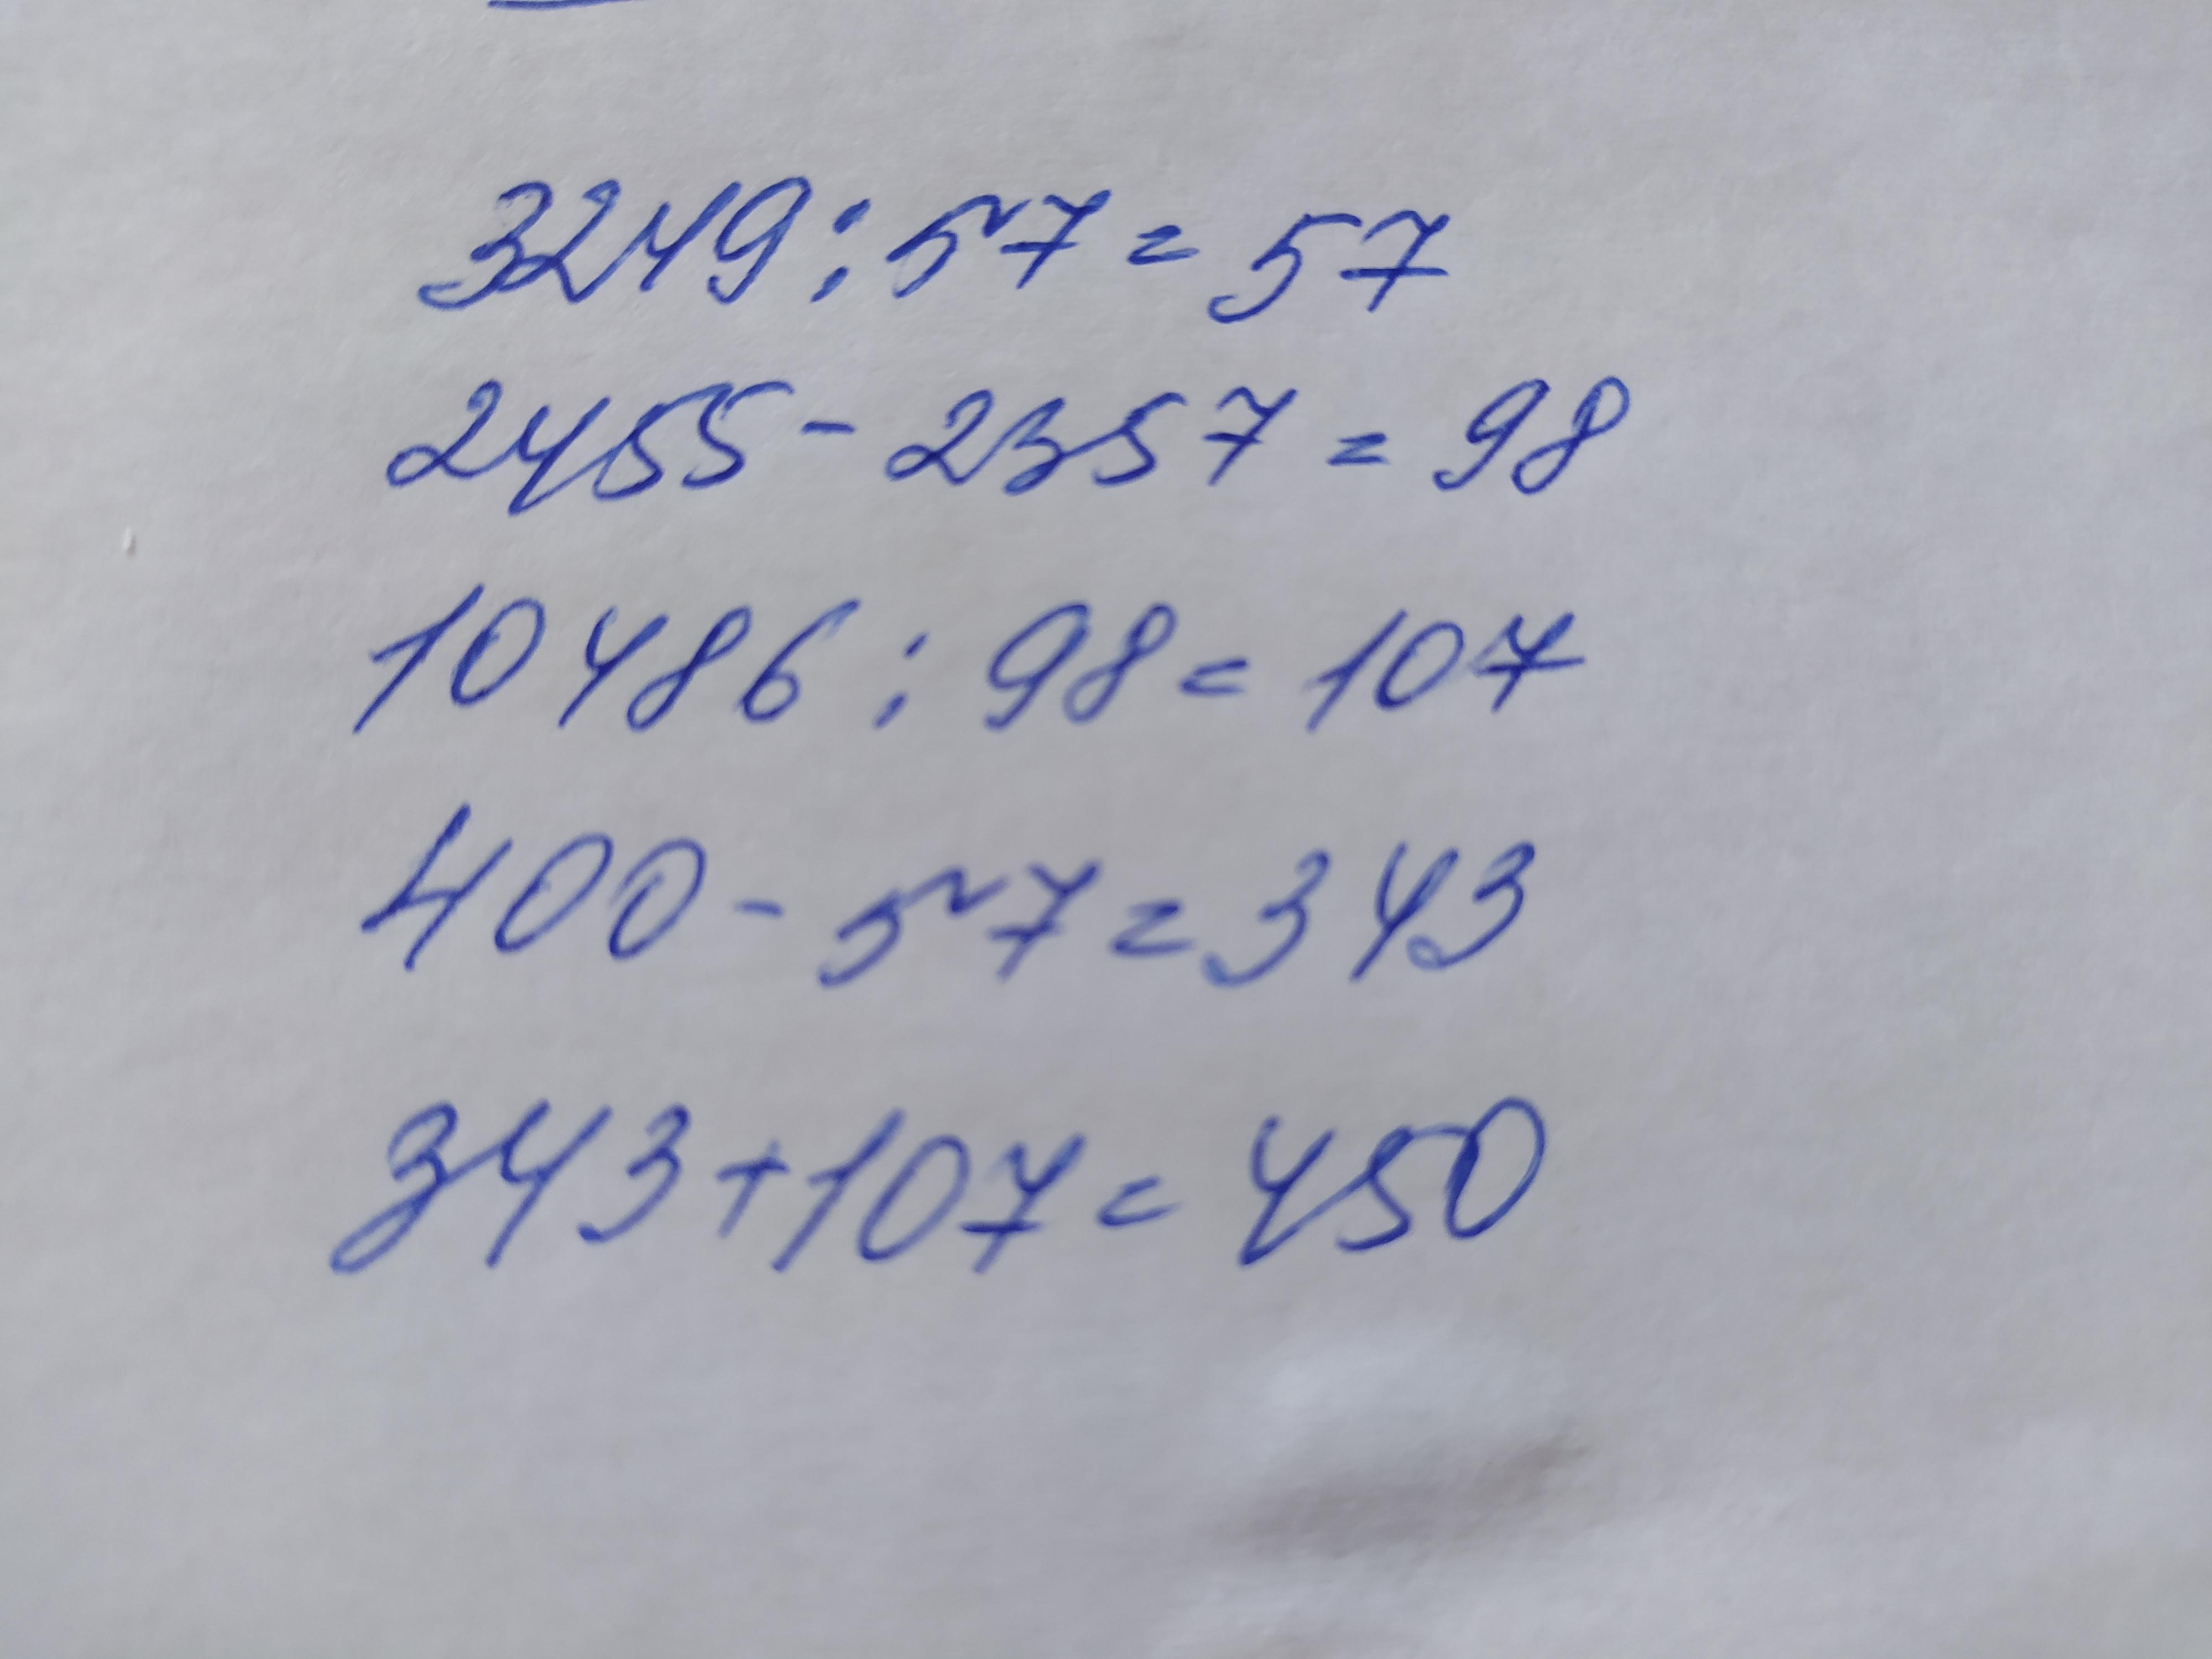 3249:57=57
2455-2357=98
10486:98=107
400-57=343
343+107=450